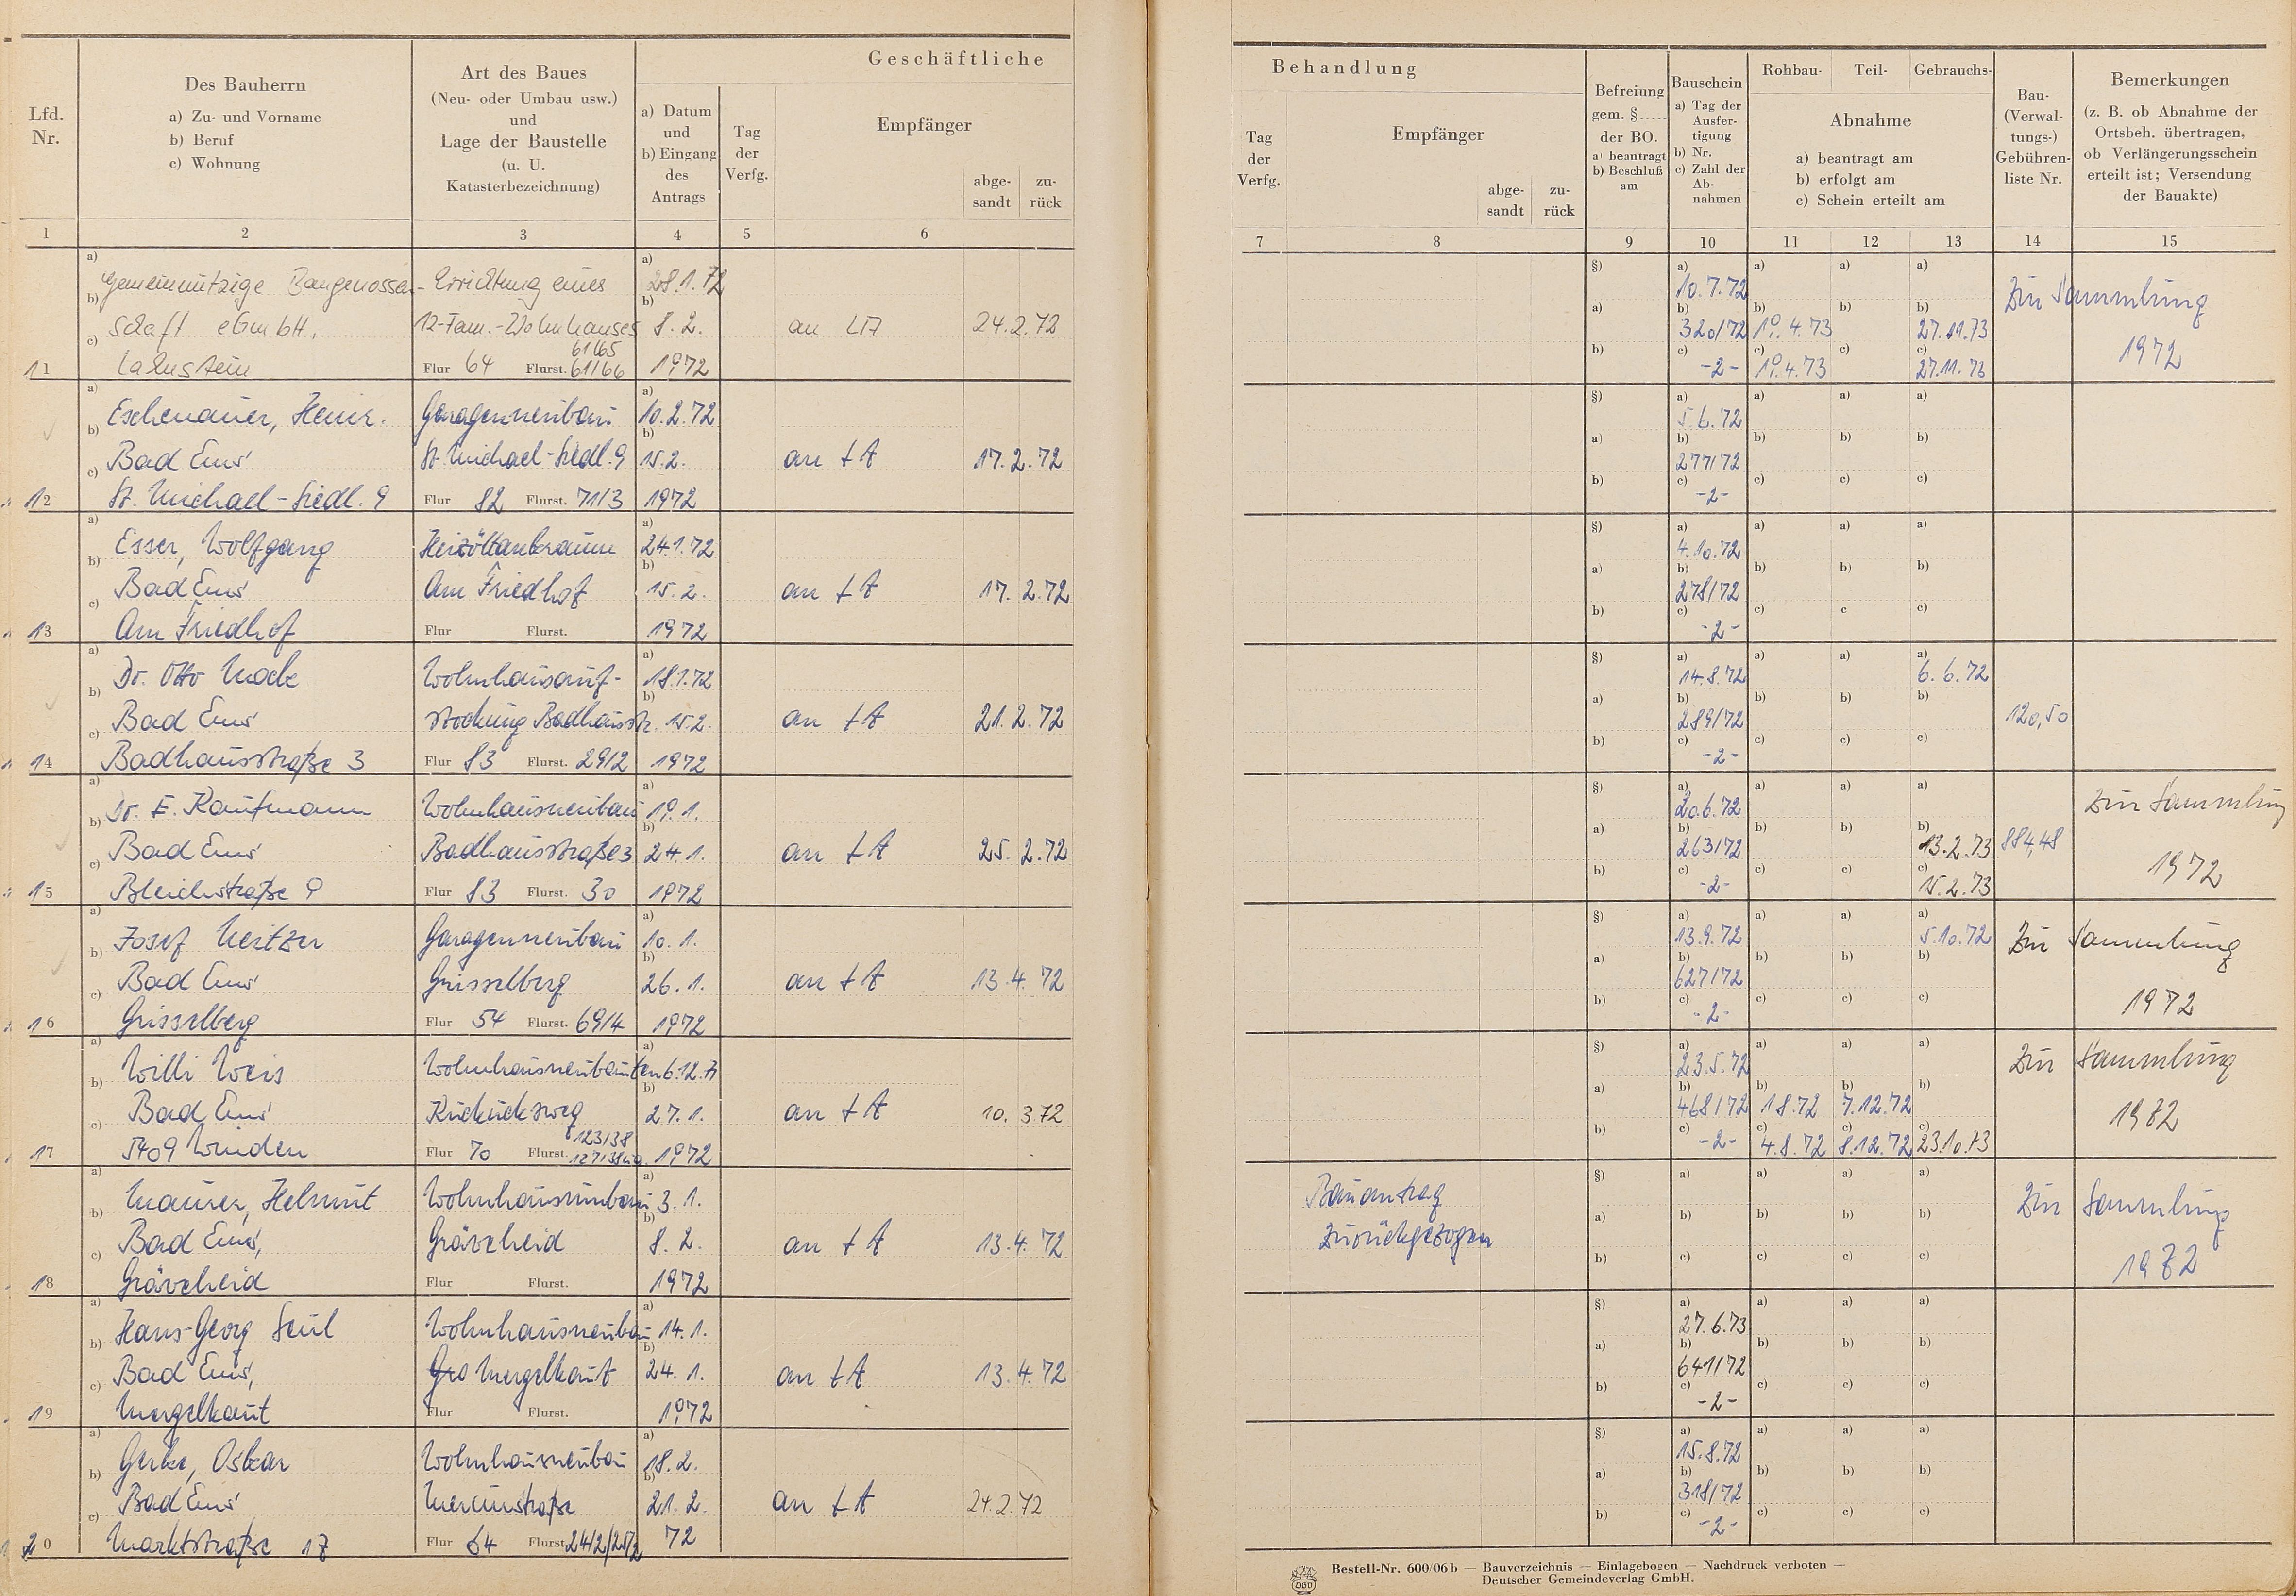 Geschäftliche Behandlung
Lfd. Nr.
Des Bauherrn
a) Zu- und Vorname
b) Beruf
c) Wohnung
Art des Baues
(Neu- oder Umbau usw.)
und
Lage der Baustelle
(u. U.
Katasterbezeichnung)
a) Datum
und
b) Eingang
des
Antrags
Tag
der
Verfg.
Empfänger
abge-
sandt
zu-
rück
Tag
der
Verfg.
Empfänger
abge-
sandt
zu-
rück
Befreiung
gem. §
der BO.
a) beantragt
b) Beschluß
am
Bauschein
a) Tag der
Ausfer-
tigung
b) Nr.
c) Zahl der
Ab-
nahmen
Rohbau- Teil- Gebrauchs-
Abnahme
a) beantragt am
b) erfolgt am
c) Schein erteilt am
Bau-
(Verwal-
tungs-)
Gebühren-
liste Nr.
Bemerkungen
(z. B. ob Abnahme der
Ortsbeh. übertragen,
ob Verlängerungsschein
erteilt ist; Versendung
der Bauakte)
1 2 3 4 5 6 7 8 9 10 11 12 13 14 15
Gemeinnützige Baugenossen- Errichtung eines 28.1.72 10.7.72 Zur Sammlung
schaft eGmbH. 12-Fam.-Wohnhauses 8.2. an LA 24.2.72 320/72 19.4.73 27.11.73
61/65
11 Lahnstein Flur 64 Flurst. 61/66 1972 -2- 19.4.73 27.11.73 1972
Eschenauer, Heinr. Garagenneubau 10.2.72 5.6.72
Bad Ems St. Michael-Siedl. 9 15.2. an LA 17.2.72 277/72
12 St. Michael-Siedl. 9 Flur 82 Flurst. 71/3 1972 -2-
Esser, Wolfgang Heizöltankraum 24.1.72 4.10.72
Bad Ems Am Friedhof 15.2. an LA 17.2.72 278/72
13 Am Friedhof Flur Flurst. 1972 -2-
Dr. Otto Wohnhausauf- 18.1.72 14.8.72 6.6.72
Bad Ems stockung Badhausstr. 15.2. an LA 21.2.72 289/72 120,50
14 Badhausstraße 3 Flur 83 Flurst. 29/2 1972 -2-
Dr. E. Kaufmann Wohnhausneubau 19.1. 20.6.72 Zur Sammlung
Bad Ems Badhausstraße 3 24.1. an LA 25.2.72 263/72 13.2.73 884,48
15 Bleichstraße 9 Flur 83 Flurst. 30 1972 -2- 15.2.73 1972
Josef Garagenneubau 10.1. 13.9.72 5.10.72 Zur Sammlung
Bad Ems Grisselberg 26.1. an LA 13.4.72 627/72
16 Grisselberg Flur 54 Flurst. 69/4 1972 -2- 1972
Willi Weis Wohnhausneubauten 6.12.71 23.5.72 Zur Sammlung
Bad Ems Kuckucksweg 27.1. an LA 10.3.72 468/72 1.8.72 7.12.72
123/38
17 5409 Winden Flur 70 Flurst. 1972 -2- 4.8.72 8.12.72 23.10.73 1982
Maurer, Helmut Wohnhausumbau 3.1. Bauantrag Zur Sammlung
Bad Ems, 8.2. an LA 13.4.72 zurückgezogen
18 Flur Flurst. 1972 1972
Hans-Georg Seul Wohnhausneubau 14.1. 27.6.73
Bad Ems, Mergelkaut 24.1. an LA 13.4.72 641/72
19 Mergelkaut Flur Flurst. 1972 -2-
Gerke, Oskar Wohnhausneubau 18.2. 15.8.72
Bad Ems 21.2. an LA 24.2.72 318/72
20 Marktstraße 17 Flur 64 Flurst. 24/2/25/2 72 -2-
Bestell-Nr. 600/06b — Bauverzeichnis — Einlagebogen — Nachdruck verboten —
Deutscher Gemeindeverlag GmbH.